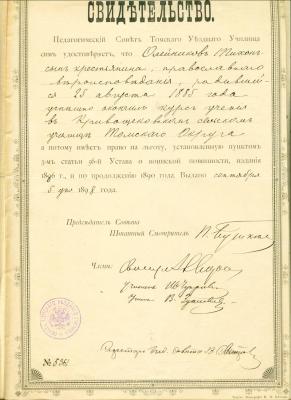 СВИДѢТЕЛЬСТВО.
Педагогическій Совѣтъ Томскаго Уѣзднаго Училища
симъ удостовѣряетъ, что Олейниковъ Тихонъ
сынъ крестьянина, православнаго
вѣроисповѣданія, родившій-
ся 25 августа 1885 года
успешно окончилъ курсъ ученія
въ Кривощековскомъ сельскомъ
училищѣ Томскаго Округа
а потому имѣетъ право на льготу, установленную пунктомъ
3-мъ статьи 56-й Устава о воинской повинности, изданія
1886 г., и по продолженію 1890 года. Выдано сентября
5 дня 1898 года.
Предсѣдатель Совѣта
Штатный Смотритель
Члены:
Учитель
Учит.
№